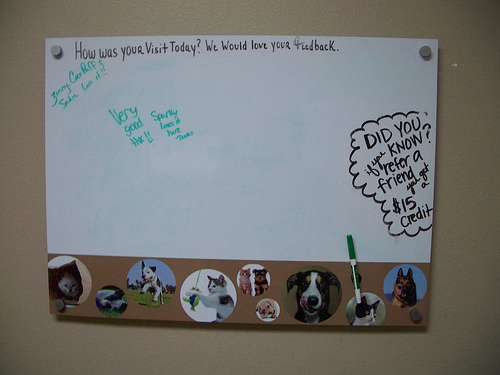 How was your Visit Today? We Would love your feedback.
Jimmy
Sadie Loves it!
Very
good
Sparky
loves it
here
DID YOU
KNOW?
if you refer a
friend you get
a
$15
Credit